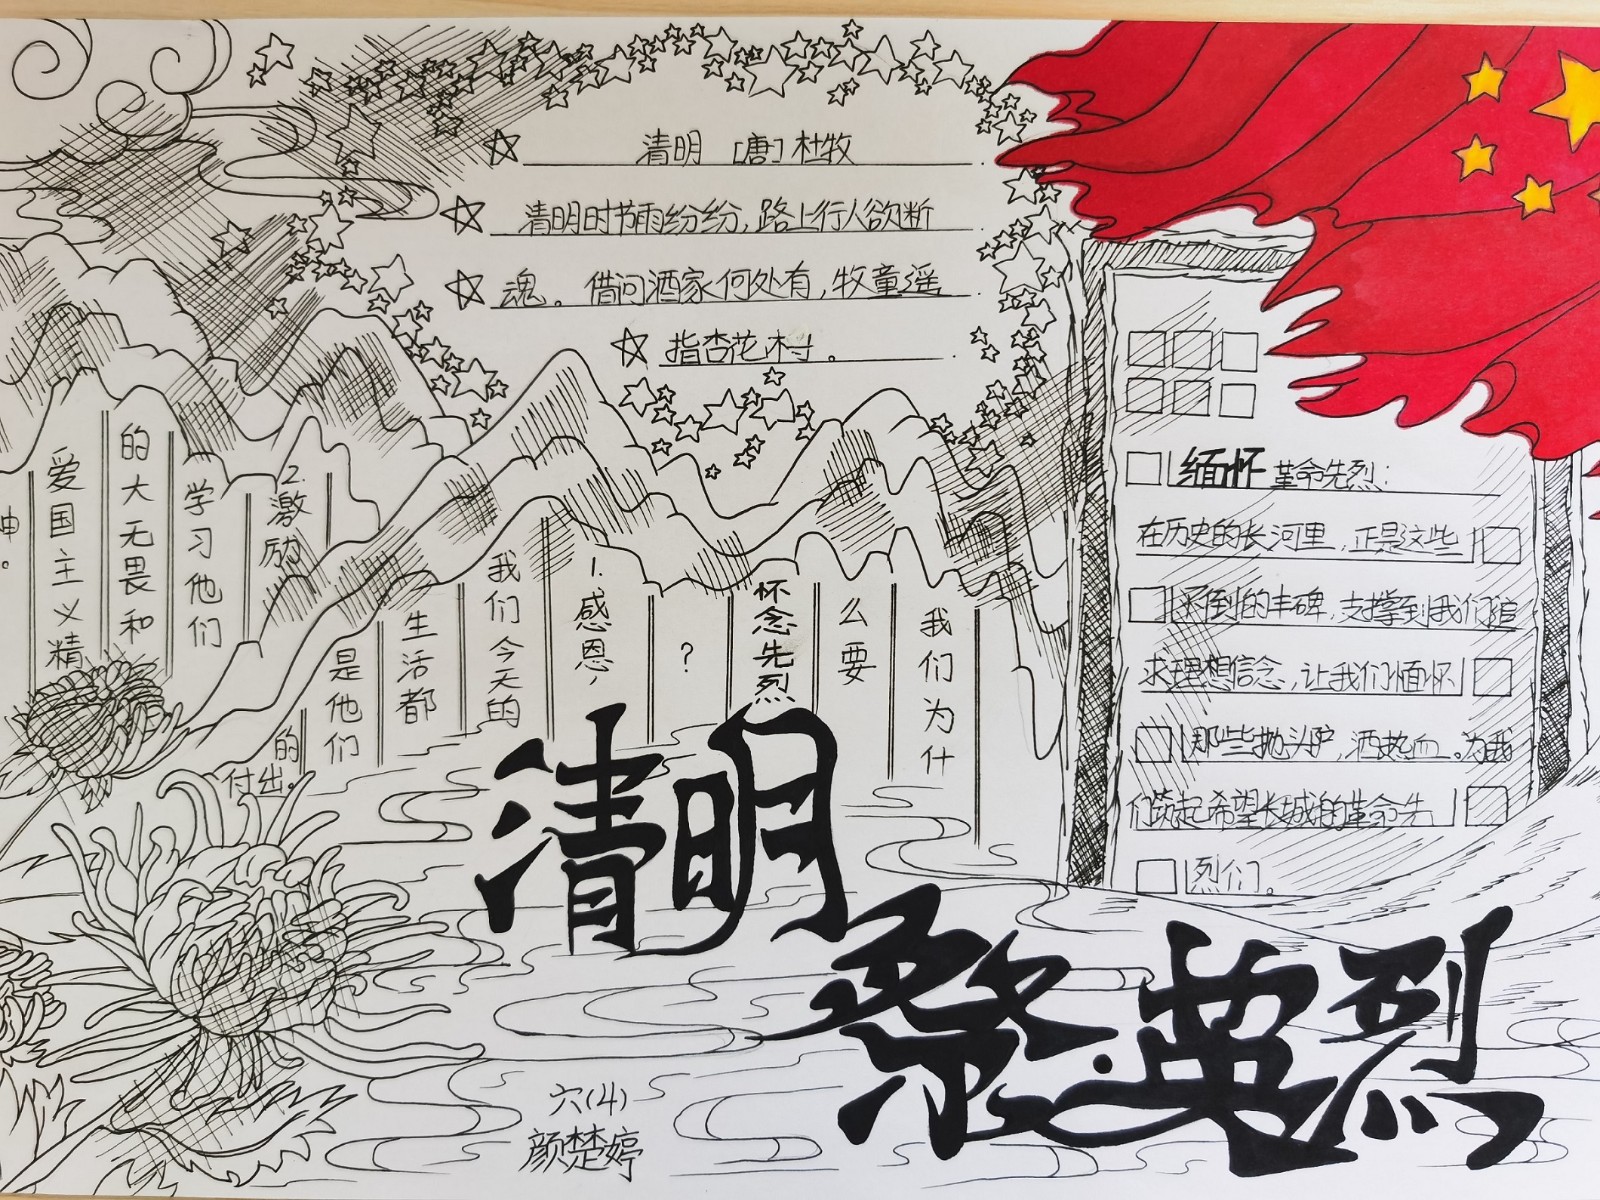 清明 [唐] 杜牧
清明时节雨纷纷，路上行人欲断
魂。借问酒家何处有，牧童遥
指杏花村。
缅怀革命先烈：
在历史的长河里，正是这些
不倒的丰碑，支撑到我们追
求理想信念，让我们缅怀
那些抛头炉，洒热血。为我
们筑起希望长城的革命先
烈们。
我们为什
么要
怀念先烈
？
1.感恩，
我们今天的
生活都
是他们
的
付出。
2.激励
学习他们
的大无畏和
爱国主义精
神。
清明
祭·英烈
六(4)
颜楚婷